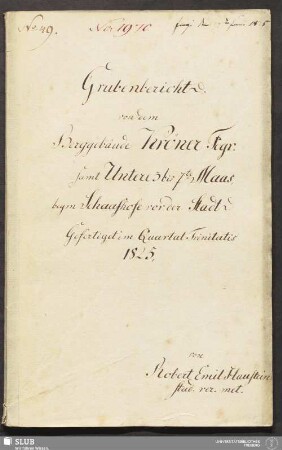 No 49. No: 1970
Grubenbericht
von dem
Berggebäude Kröner Fdgr.
samt Untere 3 bis 7te Maas
beym Schaafhofe vor der Stadt
Gefertiget im Quartal Trinitatis
1825.
von
Robert Emil Haustein
stud. rer. met.
SLUB
Wir führen Wissen.
UNIVERSITÄTSBIBLIOTHEK
FREIBERG